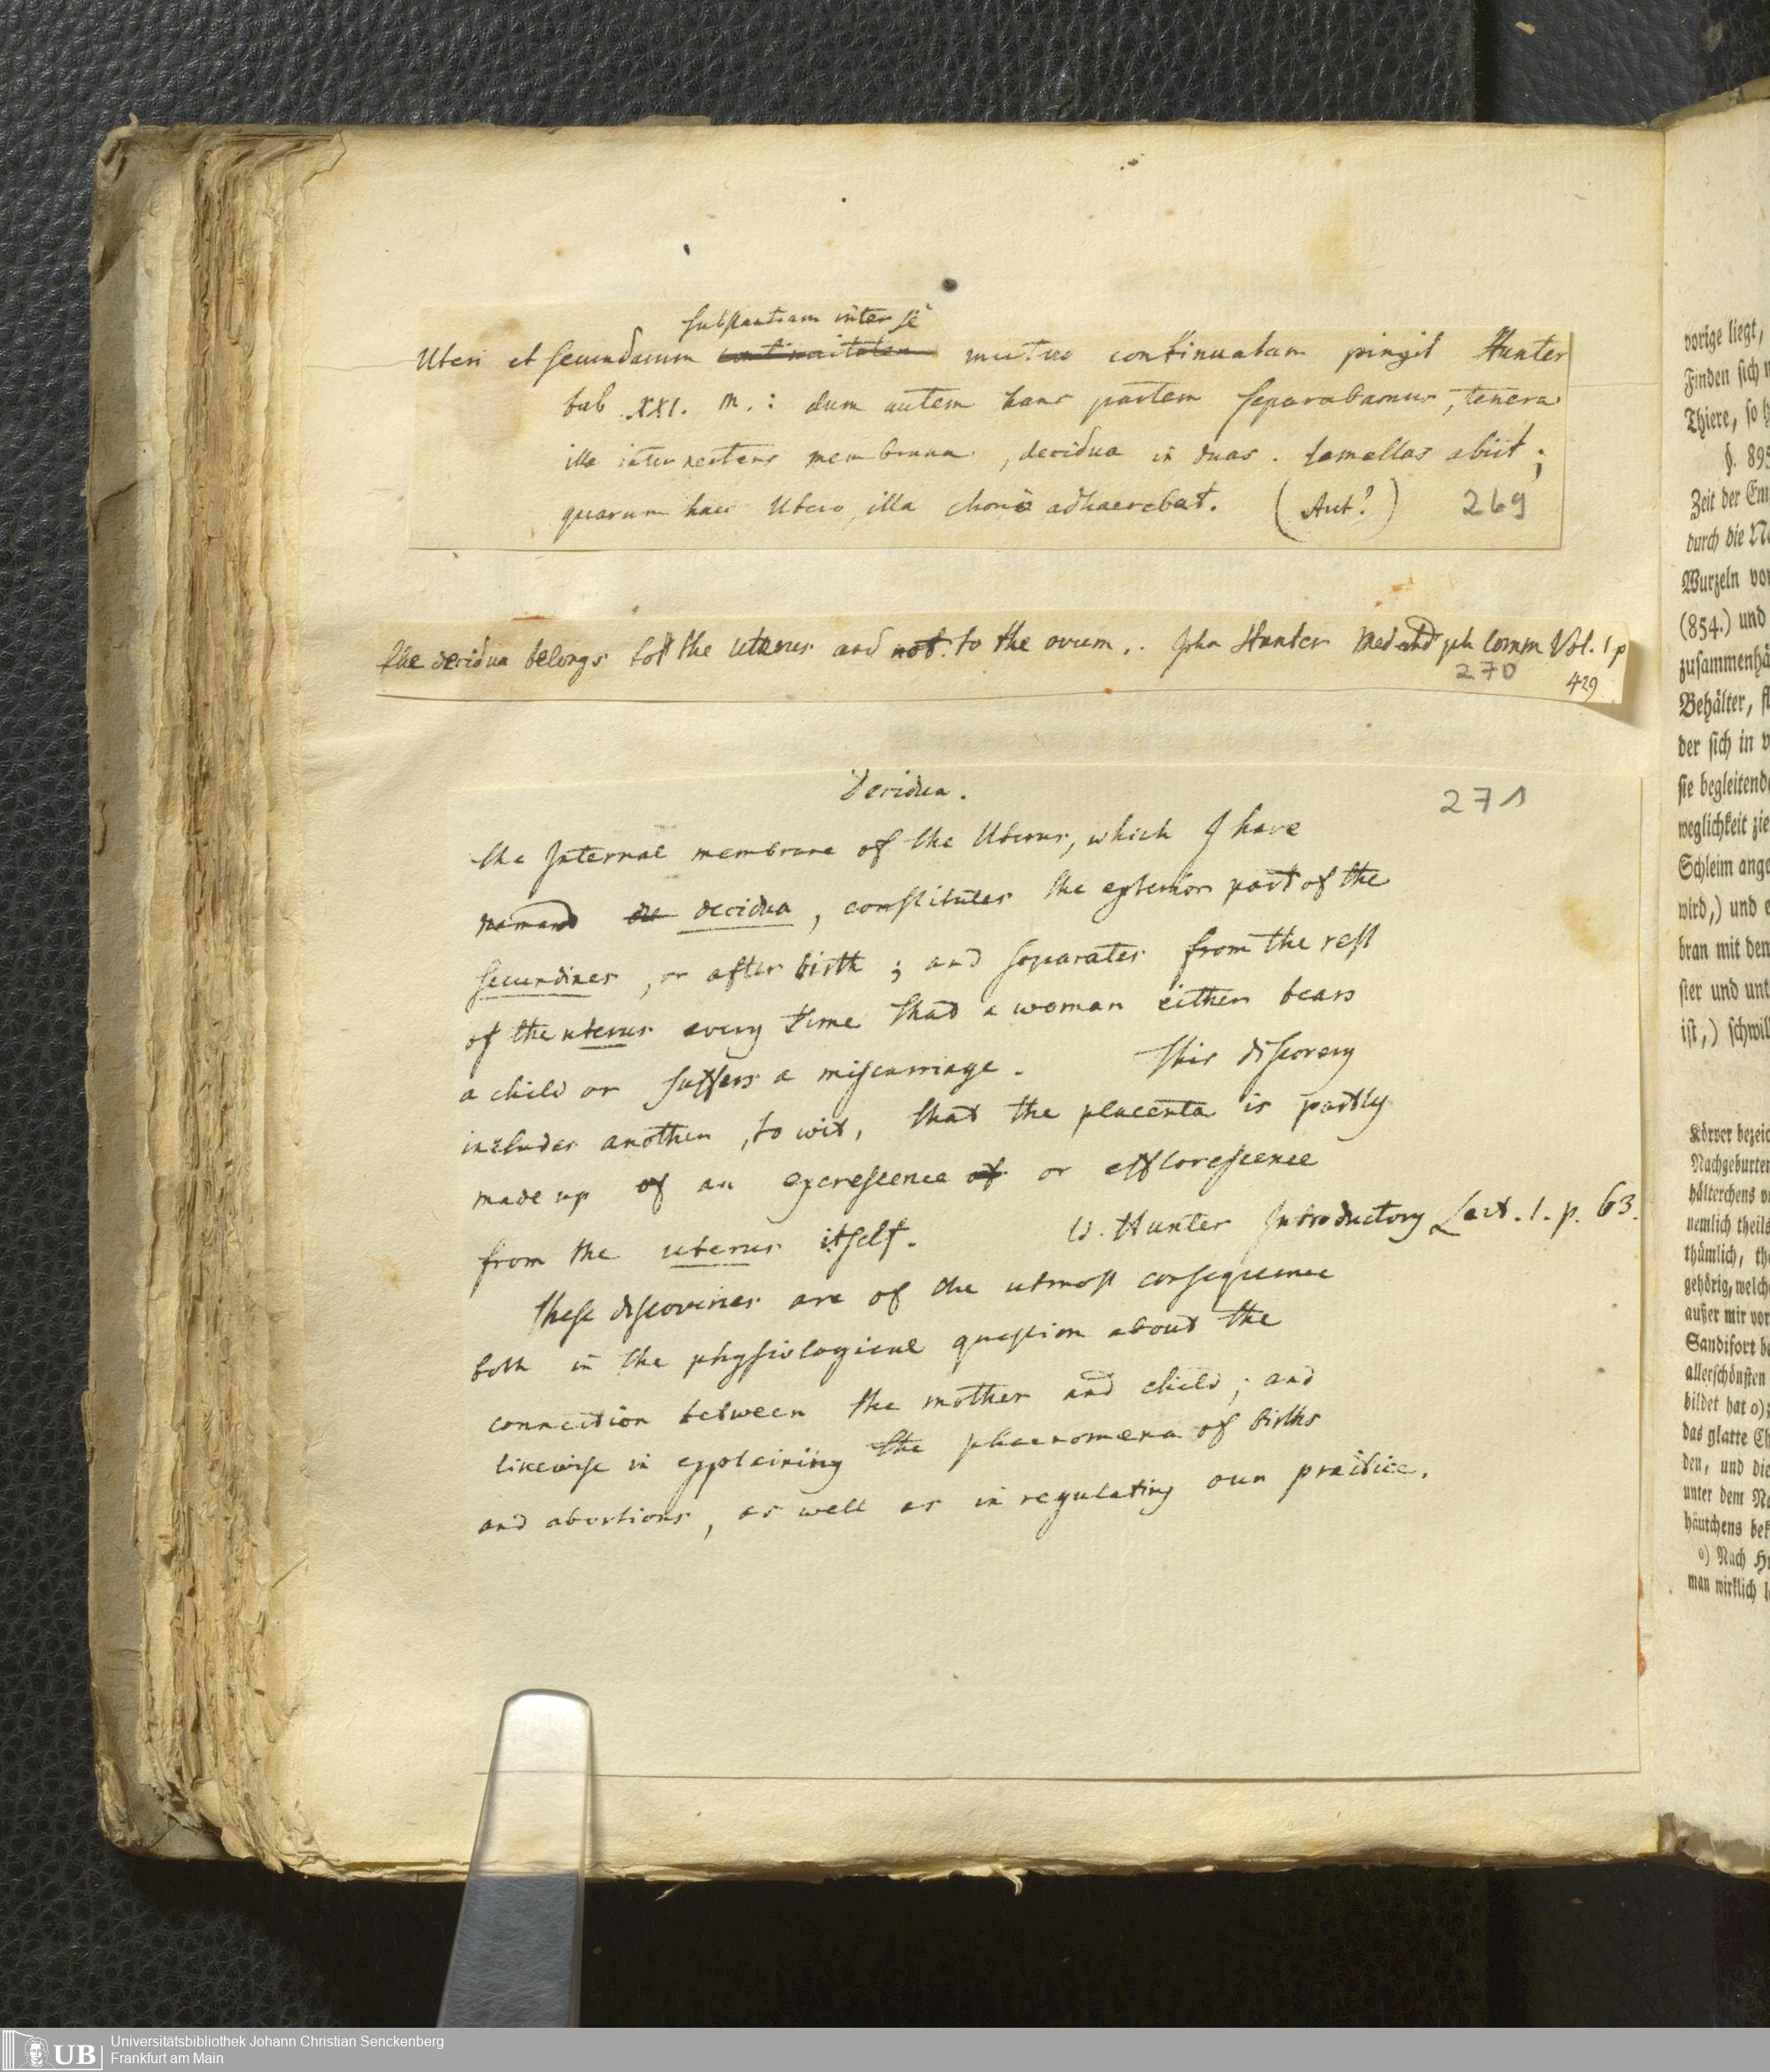 substantiam inter se
Uteri et secundarum continuitatem mutuo continuatam pingit Hunter
tab. XXI. m.: dum autem hanc partem separabamus, tenera
illa internectens membrana, decidua in duas lamellas abiit;
quarum haec Utero, illa chorio adhaerebat. (Aut?) 269
the decidua belongs to the uterus and not to the ovum.. John Hunter Med and ph Comm Vol. 1 p
270 429
Decidua. 271
the Internal membrane of the Uterus, which I have
named de decidua, constitutes the exterior part of the
secundines, or after birth; and separates from the rest
of the uterus every time that a woman either bears
a child or suffers a miscarriage. This discovery
includes another, to wit, that the placenta is partly
made up of an excrescence of or efflorescence
from the uterus itself. W. Hunter Introductory Lect. 1. p. 63.
These discoveries are of the utmost consequence
both in the physiological question about the
connection between the mother and child; and
likewise in explaining the phaenomena of births
and abortions, as well as in regulating our practice.
vorige liegt,
Finden sich
Thiere, so
§. 895
Zeit der
durch die
Wurzeln
(854.) und
Behälter,
der sich in
sie
weglichkeit
Schleim
wird,) und
bran mit dem
ster und
ist,)
Körper
hälterchens
nemlich theils
thümlich,
gehörig, welche
außer mir vor
Sandifort
allerschönsten
bildet hat o);
das glatte
den, und die
unter dem
häutchens
o) Nach
man wirklich
UB
Universitätsbibliothek Johann Christian Senckenberg
Frankfurt am Main